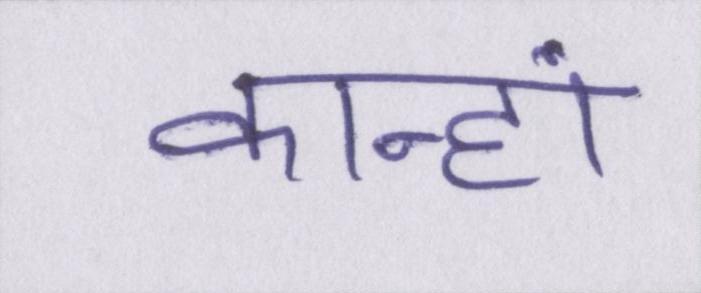 कान्हां